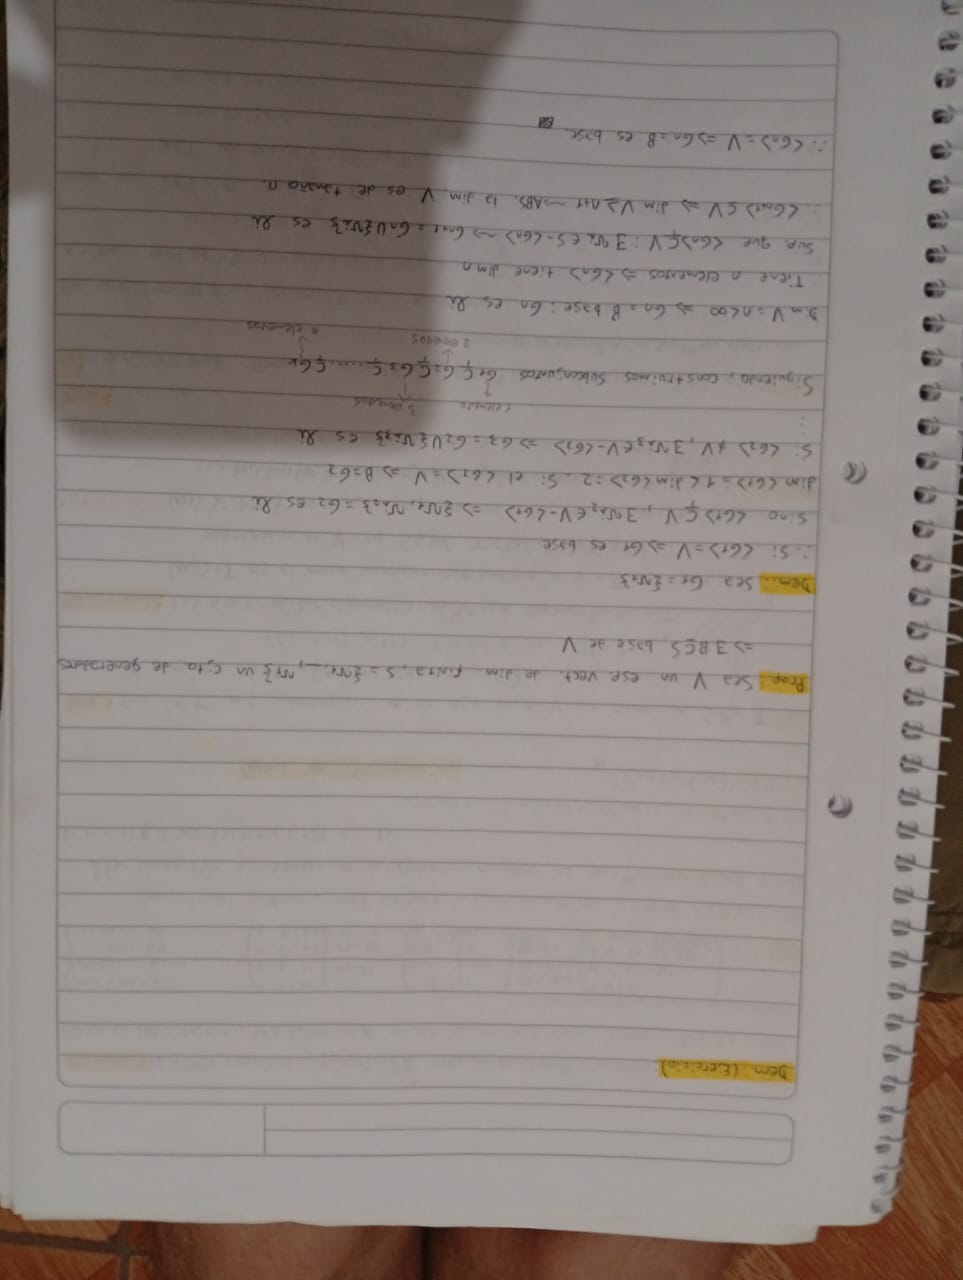 Dem: (Ejercicio)
Prop: Sea V un esp vect. de dim finita, S = {v1, ..., vr} un cjto de generadores
=> ∃ B⊆S base de V
Dem: Sea G1 = {v1}
∴ Si <G1> = V => G1 es base
Sino <G1> ⊊ V, ∃ vi2 ∈ V - <G1> => {v1, vi2} = G2 es li
dim <G1> = 1 < dim <G2> = 2. Si el <G2> = V => B = G2
Si <G2> ≠ V, ∃ vi3 ∈ V - <G2> => G3 = G2 ∪ {vi3} es li
⋮
1 elemento 3 elementos
Siguiendo, construimos subconjuntos G1 ⊊ G2 ⊊ G3 ⊊ ..... ⊊ Gk
2 elementos k elementos
Dim V = n < ∞ => Gn = B base: Gn es li
Tiene n elementos => <Gn> tiene dim n
Sup. que <Gn> ⊊ V: ∃ vi ∈ S - <Gn> ~> Gn+1 = Gn ∪ {vi} es li
<Gn+1> ⊆ V => dim V ≥ n+1 ~> ABS. la dim V es de tamaño n.
∴ <Gn> = V => Gn = B es base.